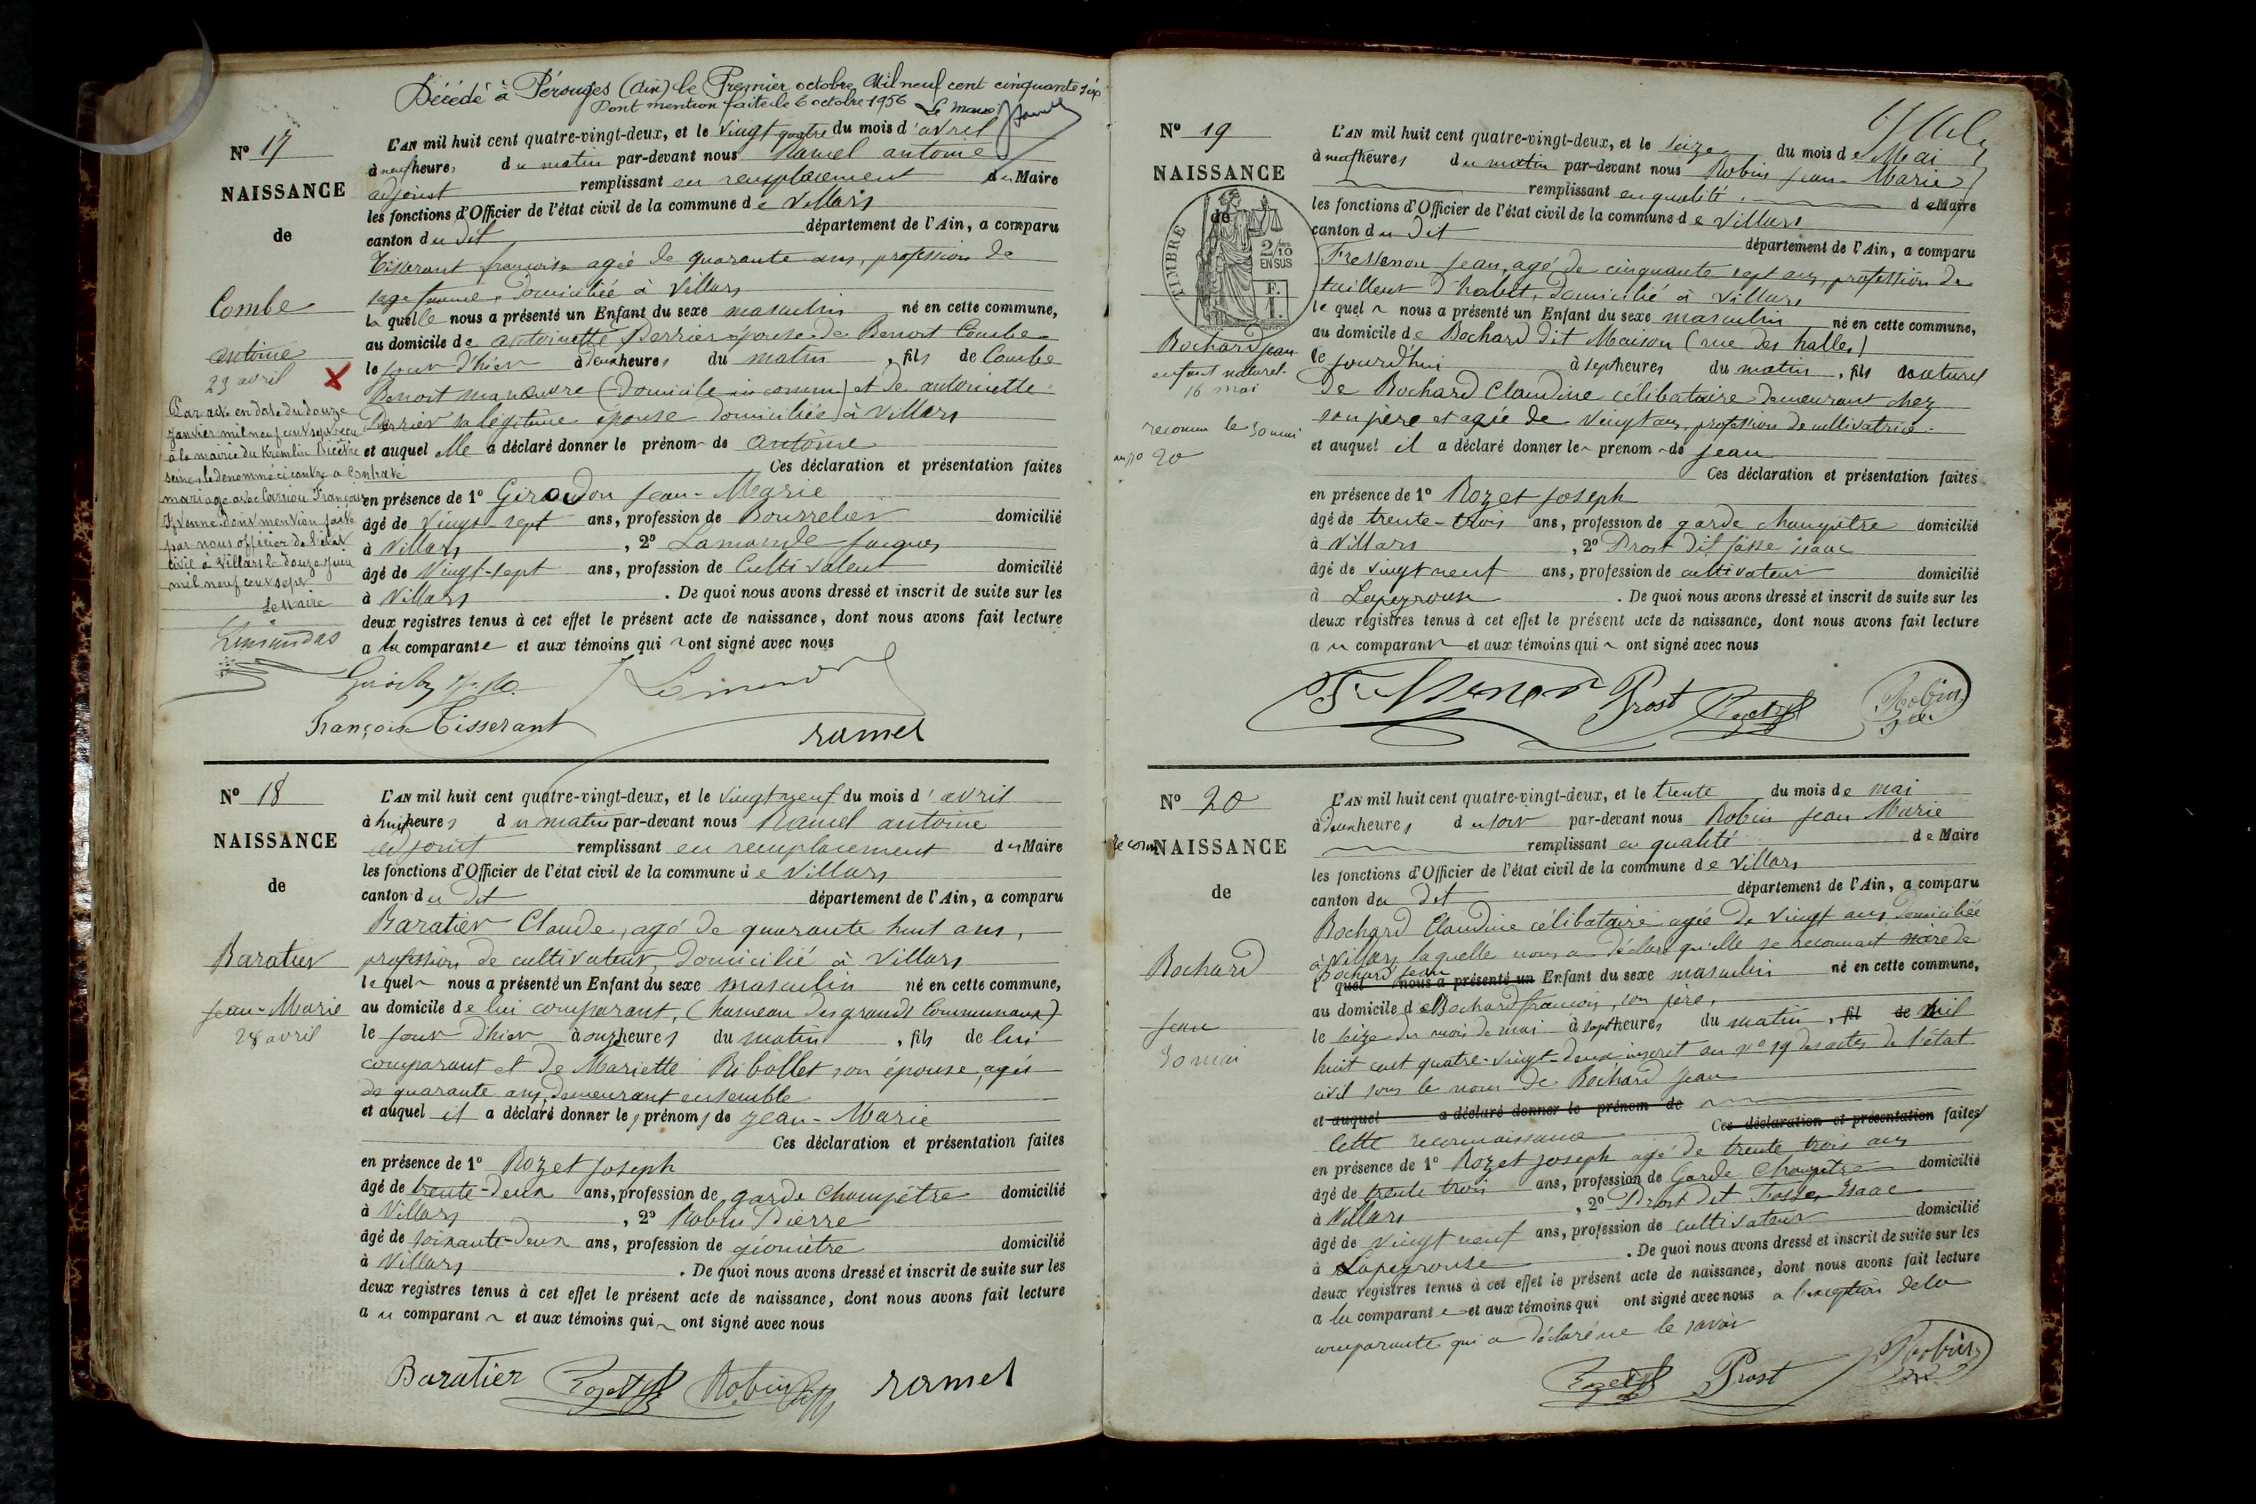 Décédé à Pérouges (Ain) le Premier octobre Mil neuf cent cinquante six
Dont mention faite le 6 octobre 1956 Le Maire
Nº 17
NAISSANCE
de
Combe
antoine
23 avril
Par acte en date du douze
janvier mil neuf cent sept reçu
à la mairie du Kremlin Bicêtre
seine, le dénommé ci contre a contracté
mariage avec Françoise
Yvonne dont mention faite
par nous officier de l'état
civil à Villars le douze juin
mil neuf cent sept
Le Maire
L'AN mil huit cent quatre-vingt-deux, et le vingt quatre du mois d'avril
à neuf heures du matin par-devant nous Ramel antoine
adjoint remplissant en remplacement du Maire
les fonctions d'Officier de l'état civil de la commune de Villars
canton du dit département de l'Ain, a comparu
Tisserant françoise agée de quarante ans, profession de
sage femme, domiciliée à Villars
la quelle nous a présenté un Enfant du sexe masculin né en cette commune,
au domicile de antoinette Perrier épouse de Benoit Combe
le jour d'hier à deux heures du matin, fils de Combe
Benoit manœuvre (domicile inconnu) et de antoinette
Perrier sa légitime épouse domiciliée à Villars
et auquel elle a déclaré donner le prénom de antoine
Ces déclaration et présentation faites
en présence de 1º Giroudon Jean-Marie
âgé de vingt-sept ans, profession de Bourrelier domicilié
à Villars, 2º Jacques
âgé de Vingt-sept ans, profession de Cultivateur domicilié
à Villars. De quoi nous avons dressé et inscrit de suite sur les
deux registres tenus à cet effet le présent acte de naissance, dont nous avons fait lecture
a la comparante et aux témoins qui ont signé avec nous
Françoise Tisserant ramel
Nº 18
NAISSANCE
de
Baratier
Jean-Marie
28 avril
L'AN mil huit cent quatre-vingt-deux, et le vingt neuf du mois d'avril
à huit heures du matin par-devant nous Ramel antoine
adjoint remplissant en remplacement du Maire
les fonctions d'Officier de l'état civil de la commune de Villars
canton du dit département de l'Ain, a comparu
Baratier Claude, agé de quarante huit ans,
profession de cultivateur, domicilié à Villars
lequel nous a présenté un Enfant du sexe masculin né en cette commune,
au domicile de lui comparant, (hameau des grands Communaux)
le jour d'hier à onze heures du matin, fils de lui
comparant et de Mariette Ribollet son épouse, agée
de quarante ans, demeurant ensemble
et auquel il a déclaré donner les prénoms de Jean-Marie
Ces déclaration et présentation faites
en présence de 1º Rozet Joseph
âgé de trente-deux ans, profession de garde Champêtre domicilié
à Villars, 2º Robin Pierre
âgé de soixante-deux ans, profession de géomètre domicilié
à Villars. De quoi nous avons dressé et inscrit de suite sur les
deux registres tenus à cet effet le présent acte de naissance, dont nous avons fait lecture
a u comparant et aux témoins qui ont signé avec nous
Baratier Rozet Robin ramel
Nº 19
NAISSANCE
de
TIMBRE
2/10
EN SUS
F.
1.
Bochard Jean
enfant naturel
16 mai
reconnu le 30 mai
au nº 20
L'AN mil huit cent quatre-vingt-deux, et le seize du mois de Mai
à neuf heures du matin par-devant nous Robin Jean-Marie
remplissant en qualité de Maire
les fonctions d'Officier de l'état civil de la commune de Villars
canton du dit département de l'Ain, a comparu
Fressenon Jean, agé de cinquante sept ans, profession de
tailleur d'habit, domicilié à Villars
le quel nous a présenté un Enfant du sexe masculin né en cette commune,
au domicile de Bochard dit Maison (rue des halles)
le jourd'hui à sept heures du matin, fils naturel
de Bochard Claudine célibataire demeurant chez
son père et agée de Vingt ans, profession de cultivatrice.
et auquel il a déclaré donner le prénom de Jean
Ces déclaration et présentation faites
en présence de 1º Rozet Joseph
âgé de trente-trois ans, profession de garde champêtre domicilié
à Villars, 2º Prost dit fosse isaac
âgé de vingt neuf ans, profession de cultivateur domicilié
à Lapeyrouse. De quoi nous avons dressé et inscrit de suite sur les
deux registres tenus à cet effet le présent acte de naissance, dont nous avons fait lecture
a u comparant et aux témoins qui ont signé avec nous
Prost Rozet Robin
Nº 20
reconn
NAISSANCE
de
Bochard
Jean
30 mai
L'AN mil huit cent quatre-vingt-deux, et le trente du mois de mai
à deux heures du soir par-devant nous Robin Jean Marie
remplissant en qualité de Maire
les fonctions d'Officier de l'état civil de la commune de Villars
canton du dit département de l'Ain, a comparu
Bochard Claudine célibataire agée de vingt ans domiciliée
à Villars laquelle nous a déclaré qu'elle se reconnait mère de
Bochard Jean
l quel nous a présenté un Enfant du sexe masculin né en cette commune,
au domicile de Bochard françois, son père,
le seize du mois de mai à sept heures du matin, fil de mil
huit cent quatre-vingt-deux inscrit au nº 19 des actes de l'état
civil sous le nom de Bochard Jean
et auquel a déclaré donner le prénom de
Cette reconnaissance Ces déclaration et présentation faites
en présence de 1º Rozet Joseph agé de trente trois ans
âgé de trente trois ans, profession de Garde Champêtre domicilié
à Villars, 2º Prost dit Fosse, Isaac
âgé de vingt neuf ans, profession de cultivateur domicilié
à Lapeyrouse. De quoi nous avons dressé et inscrit de suite sur les
deux registres tenus à cet effet le présent acte de naissance, dont nous avons fait lecture
a la comparante et aux témoins qui ont signé avec nous a l'exception de la
comparante qui a déclaré ne le savoir
Rozet Prost Robin